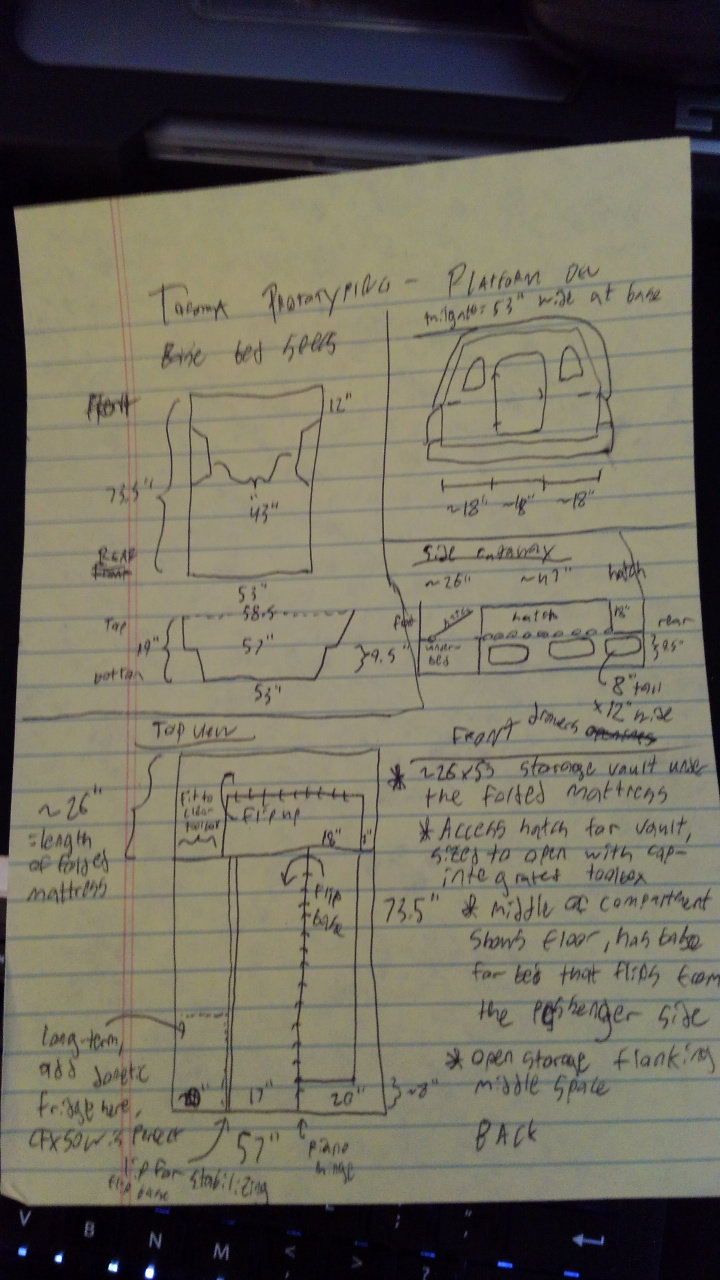 Tacoma Prototyping - Platform
tailgate = 53" wide at base
Base bed specs
Front
12"
73.5"
43"
REAR
53"
~18" ~18" ~18"
Side cutaway
~26" ~47" hatch
hatch
hatch
18"
rear
under-
bed
9.5"
8" tall
x 12" wide
58.5
Top
19"
57"
bottom
9.5"
53"
Top view
Front
drawers
openings
~26"
= length
of folded
mattress
Fit to
clear
toolbox
flip up
18"
flip
base
73.5"
* ~26x53 storage vault under
the folded mattress
* Access hatch for vault,
sized to open with cap-
integrated toolbox
* middle of compartment
shows floor, has base
for bed that flips from
the passenger side
* open storage flanking
middle space
BACK
long-term,
add
fridge here,
CFX50W is perfect
17"
20"
~8"
57"
piano
hinge
lip for stabilizing
flip base
V
B
N
M
<
>
?
:
;
"
'